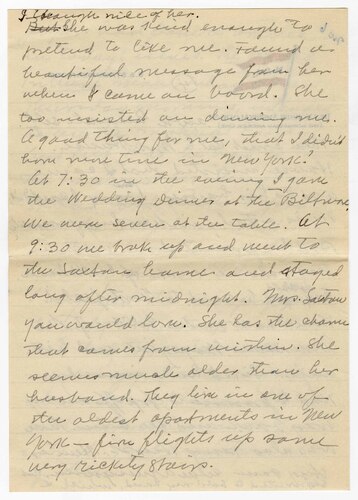 I thought nice of her.
But She was kind enough to
pretend to like me. Found a
beautiful message from her
when I came on board. She
too insisted on dining me.
A good thing for me, that I didn't
have more time in New York!
At 7:30 in the evening I gave
the Wedding Dinner at the Biltmore,
We were seven at the table. At
9:30 we broke up and went to
the Saxton home and stayed
long after midnight. Mrs. Saxton
you would love. She has the charm
that comes from within. She
seems much older than her
husband. They live in one of
the oldest apartments in New
York — five flights up some
very rickety stairs.